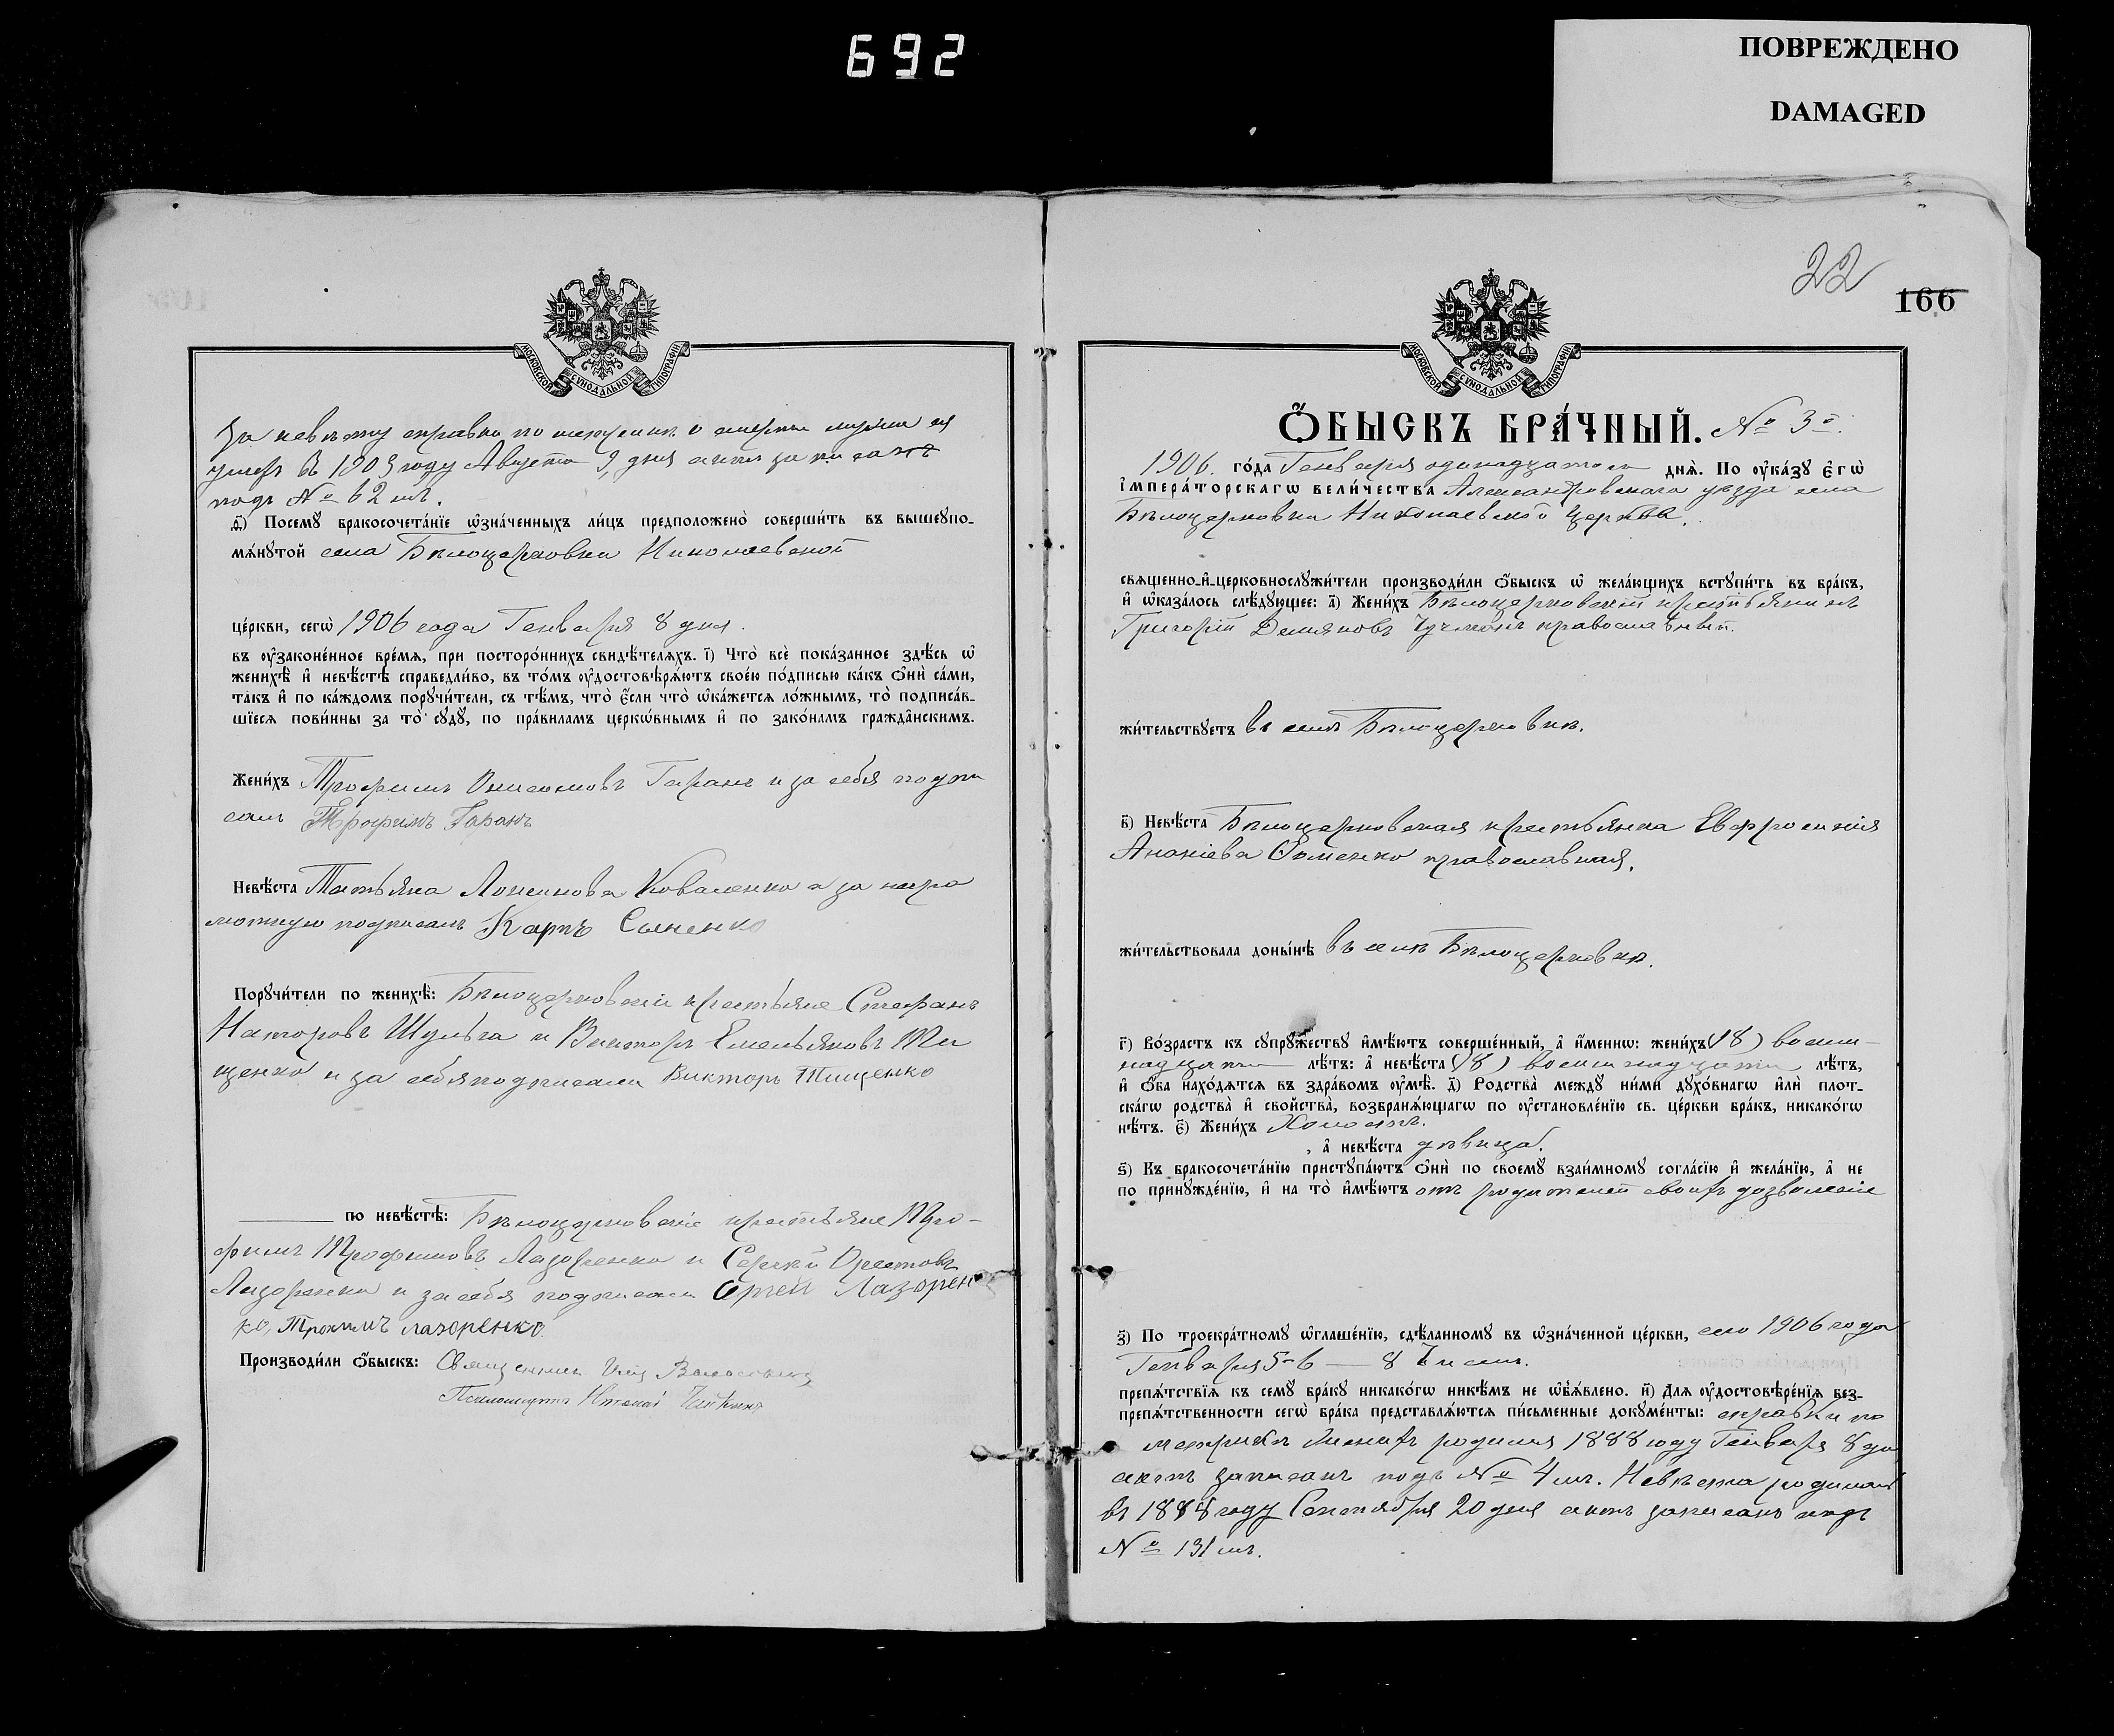 692
ПОВРЕЖДЕНО
DAMAGED
МОСКОВСКОЙ СѴНОДАЛЬНОЙ ТИПОГРАФІИ
за невѣсту справка по метрикѣ о смерти мужа ея
умеръ въ 1905 году Августа 9, дня актъ записанъ
подъ № 62 мъ.
д҃і) Посемꙋ бракосочета́нїе ѡ҆зна́ченныхъ ли́цъ предположено̀ соверши́ть въ вышеꙋпо-
мѧ́нꙋтой села Бѣлоцерковки Николаевской
це́ркви, сегѡ̀ 1906 года Генваря 8 дня.
въ ᲂу҆зако́ненное вре́мѧ, при посторо́ннихъ свидѣ́телѧхъ. і҃) Что̀ всѐ пока́занное здѣ́сь ѡ҆
женихѣ̀ и҆ невѣ́стѣ справедли́во, въ то́мъ ᲂу҆достовѣрѧ́ютъ свое́ю по́дписью ка́къ ѻ҆нѝ са́ми,
та́къ и҆ по ка́ждомъ порꙋчи́тели, съ тѣ́мъ, что̀ є҆́сли что̀ ѡ҆ка́жетсѧ ло́жнымъ, то̀ подписа́в-
шїесѧ пови́нны за то̀ сꙋдꙋ̀, по пра́виламъ церкѡ́внымъ и҆ по зако́намъ гражда̑нскимъ.
Жени́хъ Трофимъ Онисимовъ Гаранъ и за себя подпи
салъ Трофимъ Гаранъ
Невѣ́ста Татьяна Логинова Коваленко а за негра
мотную подписалъ Карпъ Сыненко
Порꙋчи́тели по женихѣ̀: Бѣлоцерковскіе крестьяне Стефанъ
Шульга и Викторъ Емельяновъ Ти
щенко и за себя подписали Викторъ Тищенко
по невѣ́стѣ: Бѣлоцерковскіе крестьяне Тро-
фимъ Трофимовъ Лазоренко и Сергѣй Орестовъ
Лазоренко и за себя подписали Сргей Лазорен
ко, Трохимъ лазоренко.
Производи́ли ѻ҆́быскъ: Священникъ
Псаломщикъ
22
166
МОСКОВСКОЙ СѴНОДАЛЬНОЙ ТИПОГРАФІИ
Ѻ҆́БЫСКЪ БРА́ЧНЫЙ. № 3й.
1906. го́да Генваря одинадцатого днѧ̀. По ᲂу҆ка́зꙋ є҆гѡ̀
і҆мпера́торскагѡ вели́чества Александровскаго уезда села
Бѣлоцерковки Николаевской церкви.
свѧщенно-и҆-церковнослꙋжи́тели производи́ли ѻ҆́быскъ ѡ҆ жела́ющихъ встꙋпи́ть въ бра́къ,
и҆ ѡ҆каза́лось слѣ́дꙋющее: а҃) Жени́хъ Бѣлоцерковскій крестьянинъ
Григорій Демяновъ православный.
жи́тельствꙋетъ въ селѣ Бѣлоцерковкѣ.
в҃) Невѣ́ста Бѣлоцерковская крестьянка Евфросинія
Ананіева православная.
жи́тельствовала доны́нѣ въ селѣ Бѣлоцерковкѣ.
г҃) Во́зрастъ къ сꙋпрꙋ́жествꙋ и҆мѣ́ютъ соверше́нный, а҆ и҆́меннѡ: жени́хъ (18) восем-
надцати лѣ́тъ: а҆ невѣ́ста (18) восемнадцати лѣ́тъ,
и҆ ѻ҆́ба нахо́дѧтсѧ въ здра́вомъ ᲂу҆мѣ̀. д҃) Родства̀ междꙋ̀ ни́ми дꙋхо́внагѡ и҆лѝ плот-
ска́гѡ родства̀ и҆ свойства̀, возбранѧ́ющагѡ по ᲂу҆становле́нїю св. це́ркви бра́къ, никако́гѡ
нѣ́тъ. є҃) Жени́хъ Холостъ.
, а҆ невѣ́ста дѣвица.
ѕ҃) Къ бракосочета́нїю пристꙋпа́ютъ ѻ҆нѝ по своемꙋ̀ взаи́мномꙋ согла́сїю и҆ жела́нїю, а҆ не
по принꙋжде́нїю, и҆ на то̀ и҆мѣ́ютъ отъ родителей своихъ дозволеніе
з҃) По троекра́тномꙋ ѡ҆глаше́нїю, сдѣ́ланномꙋ въ ѡ҆зна́ченной це́ркви, сего 1906 года
Генваря 5-6 — 8 чиселъ.
препѧ́тствїѧ къ семꙋ̀ бра́кꙋ никако́гѡ никѣ́мъ не ѡ҆б̾ѧ́влено. и҃) Длѧ ᲂу҆достовѣре́нїѧ без-
препѧ́тственности сегѡ̀ бра́ка представлѧ́ютсѧ пи́сьменные докꙋме́нты: справки по
метрикѣ Женихъ родился 1888 году Генваря 8 дня
актъ записанъ подъ № 4 мъ. Невѣста родилась
въ 1888 году Сентября 20 дня актъ записанъ подъ
№ 131 мъ.